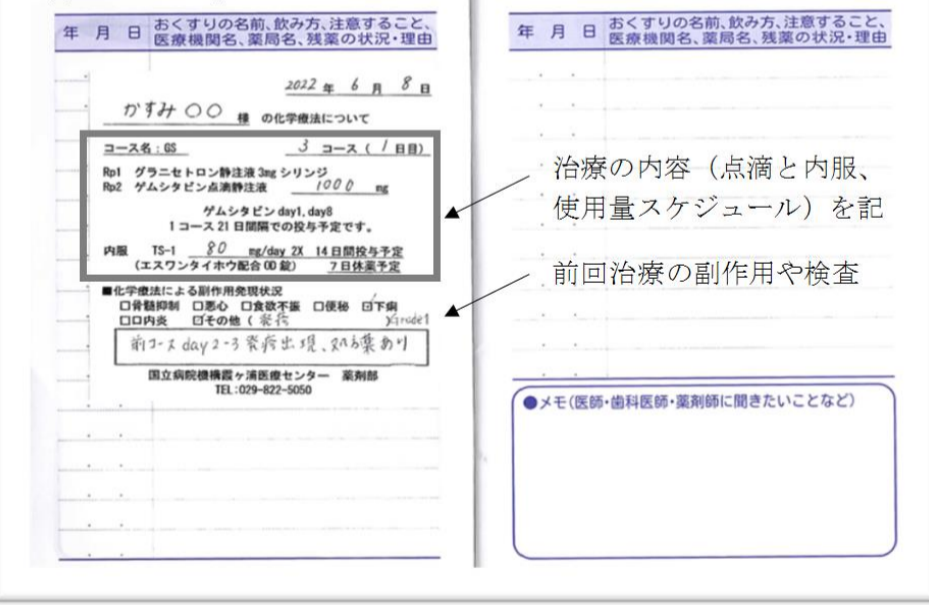 年 月 日 おくすりの名前、飲み方、注意すること、
医療機関名、薬局名、残薬の状況・理由
2022 年 6 月 8 日
かすみ 〇〇 様 の化学療法について
コース名:GS 3 コース( 1 日目)
Rp1 グラニセトロン静注液 3mg シリンジ
Rp2 ゲムシタビン点滴静注液 1000 mg
ゲムシタビン day1, day8
1 コース 21 日間隔での投与予定です。
内服 TS-1 80 mg/day 2X 14 日間投与予定
(エスワンタイホウ配合 OD 錠) 7 日休薬予定
■化学療法による副作用発現状況
□骨髄抑制 □悪心 □食欲不振 □便秘 ☑下痢
□口内炎 ☑その他 ( 発疹 )Grade1
前コース day2-3 発疹出現、処方薬あり
国立病院機構霞ヶ浦医療センター 薬剤部
TEL:029-822-5050
年 月 日 おくすりの名前、飲み方、注意すること、
医療機関名、薬局名、残薬の状況・理由
治療の内容(点滴と内服、
使用量スケジュール)を記
前回治療の副作用や検査
●メモ(医師・歯科医師・薬剤師に聞きたいことなど)